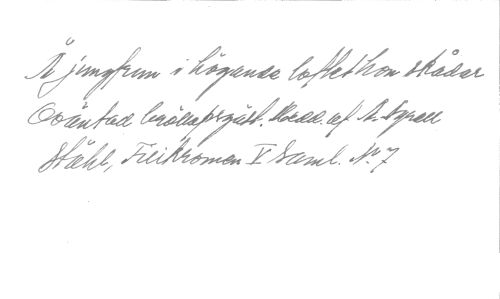 Å jungfrun i högande loftet hon skådar
Oväntad bröllopsgäst. Medd. af A. Agrell
Ståhl, Frikromen V Saml. Nr. 7